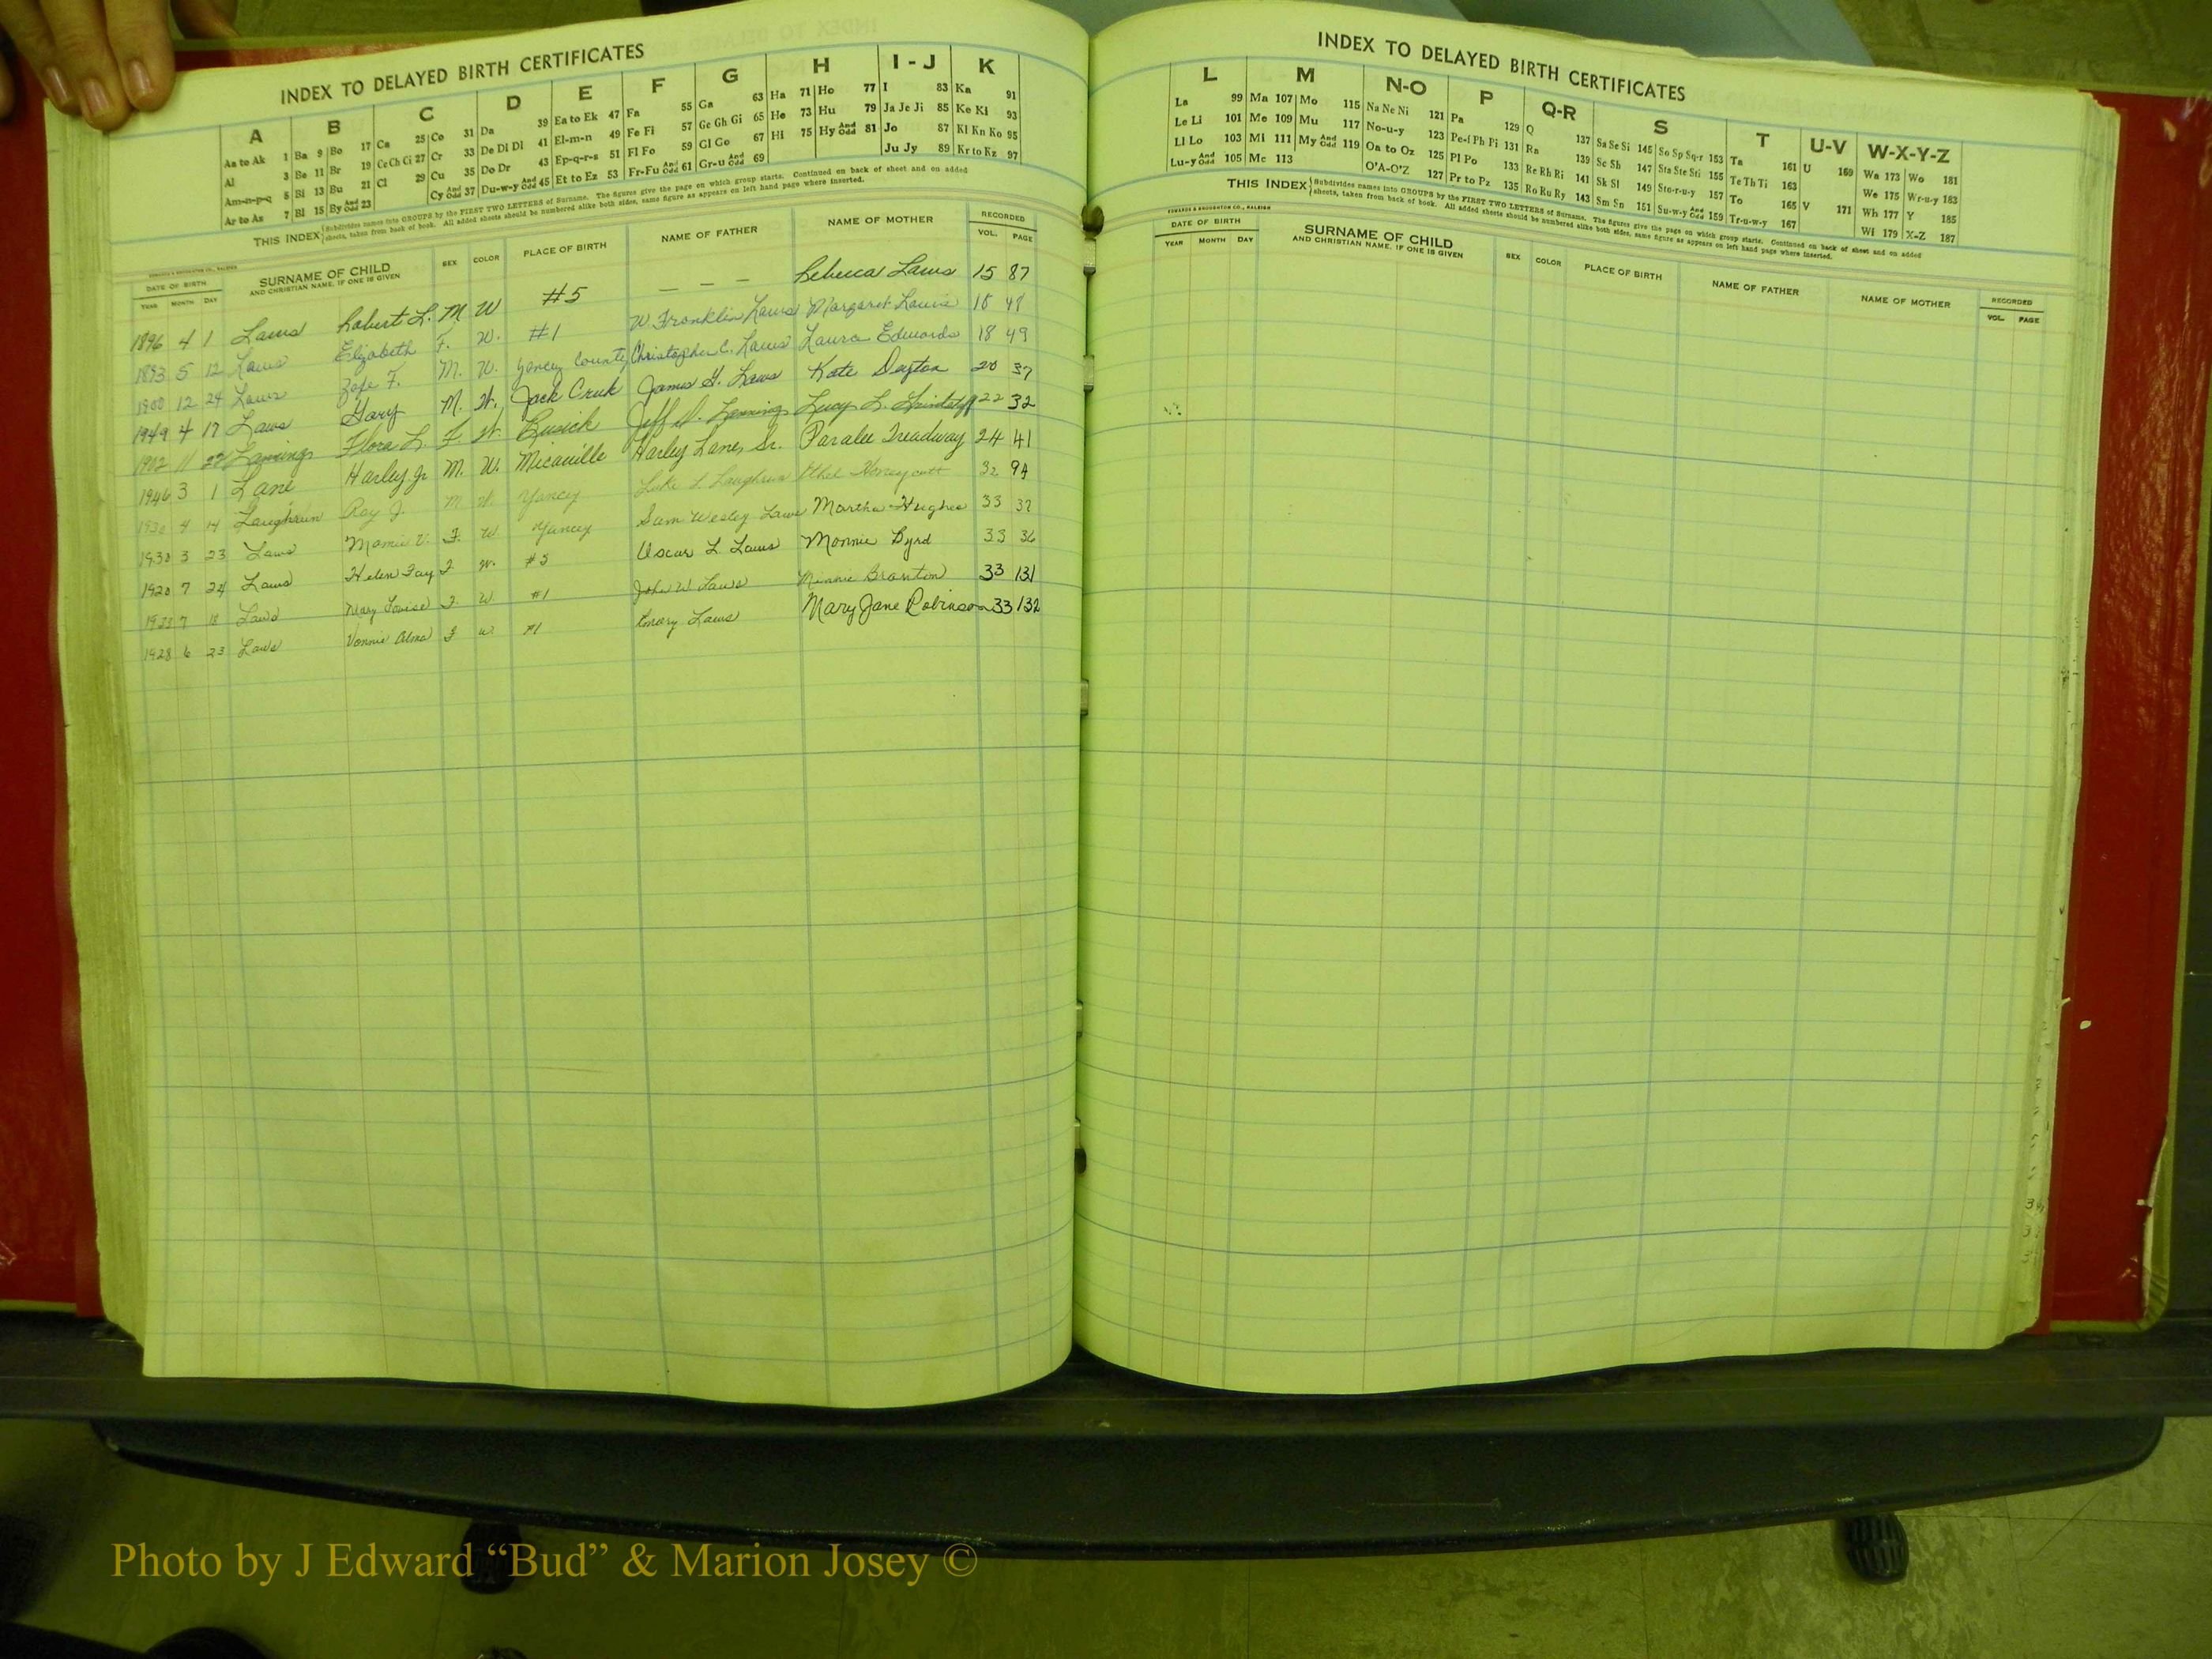 INDEX TO DELAYED BIRTH CERTIFICATES
A B C D E F G H I - J K
Aa to Ak 1 Ba 9 Bo 17 Ca 25 Co 31 Da 39 Ea to Ek 47 Fa 55 Ga 63 Ha 71 Ho 77 I 83 Ka 91
Al 3 Be 11 Br 19 Ce Ch Ci 27 Cr 33 De Di Dl 41 El-m-n 49 Fe Fi 57 Ge Gh Gi 65 He 73 Hu 79 Ja Je Ji 85 Ke Ki 93
Am-n-p-q 5 Bi 13 Bu 21 Cl 29 Cu 35 Do Dr 43 Ep-q-r-s 51 Fl Fo 59 Gl Go 67 Hi 75 Hy And Odd 81 Jo 87 Kl Kn Ko 95
Ar to As 7 Bl 15 By And Odd 23 Cy And Odd 37 Du-w-y And Odd 45 Et to Ez 53 Fr-Fu And Odd 61 Gr-u And Odd 69 Ju Jy 89 Kr to Kz 97
THIS INDEX Subdivides names into GROUPS by the FIRST TWO LETTERS of Surname. The figures give the page on which group starts. Continued on back of sheet and on added
sheets, taken from back of book. All added sheets should be numbered alike both sides, same figure as appears on left hand page where inserted.
EDWARDS & BROUGHTON CO., RALEIGH
DATE OF BIRTH SURNAME OF CHILD SEX COLOR PLACE OF BIRTH NAME OF FATHER NAME OF MOTHER RECORDED
YEAR MONTH DAY AND CHRISTIAN NAME, IF ONE IS GIVEN VOL. PAGE
1896 4 1 Laws Robert L. M W #5 — — — Rebecca Laws 15 87
1893 5 12 Laws Elizabeth F. W. #1 W. Franklin Laws Margaret Laws 18 48
1900 12 24 Laws M. W. Yancey County Christopher C. Laws Laura Edwards 18 49
1949 4 17 Laws Gary M. W. Jack Creek James G. Laws Kate Deyton 20 37
1902 11 22 Lanning Flora L. F. W. Busick Jeff D. Lanning Lucy L. 22 32
1946 3 1 Lane Harley Jr M. W. Micaville Harley Lane, Sr. Paralee Treadway 24 41
1930 4 14 Laughrun Roy J. M W. Yancey Luke L Laughrun Ethel Honeycutt 32 94
1930 3 23 Laws Mamie V. F. W Yancey Sam Wesley Laws Martha Hughes 33 32
1920 7 24 Laws Helen Fay F W. #5 Oscar L Laws Monnie Byrd 33 36
7 18 Laws Mary Louise F. W #1 John W. Laws Minnie Branton 33 131
1928 6 23 Laws Vonnie Alma F W #1 Emory Laws Mary Jane Robinson 33 132
INDEX TO DELAYED BIRTH CERTIFICATES
L M N-O P Q-R S T U-V W-X-Y-Z
La 99 Ma 107 Mo 115 Na Ne Ni 121 Pa 129 Q 137 Sa Se Si 145 So Sp Sq-r 153 Ta 161 U 169 Wa 173 Wo 181
Le Li 101 Me 109 Mu 117 No-u-y 123 Pe-f Ph Pi 131 Ra 139 Sc Sh 147 Sta Ste Sti 155 Te Th Ti 163 We 175 Wr-u-y 183
Ll Lo 103 Mi 111 My And Odd 119 Oa to Oz 125 Pl Po 133 Re Rh Ri 141 Sk Sl 149 Sto-r-u-y 157 To 165 V 171 Wh 177 Y 185
Lu-y And Odd 105 Mc 113 O'A-O'Z 127 Pr to Pz 135 Ro Ru Ry 143 Sm Sn 151 Su-w-y And Odd 159 Tr-u-w-y 167 Wi 179 X-Z 187
THIS INDEX Subdivides names into GROUPS by the FIRST TWO LETTERS of Surname. The figures give the page on which group starts. Continued on back of sheet and on added
sheets, taken from back of book. All added sheets should be numbered alike both sides, same figure as appears on left hand page where inserted.
EDWARDS & BROUGHTON CO., RALEIGH
DATE OF BIRTH SURNAME OF CHILD SEX COLOR PLACE OF BIRTH NAME OF FATHER NAME OF MOTHER RECORDED
YEAR MONTH DAY AND CHRISTIAN NAME, IF ONE IS GIVEN VOL. PAGE
Photo by J Edward “Bud” & Marion Josey ©